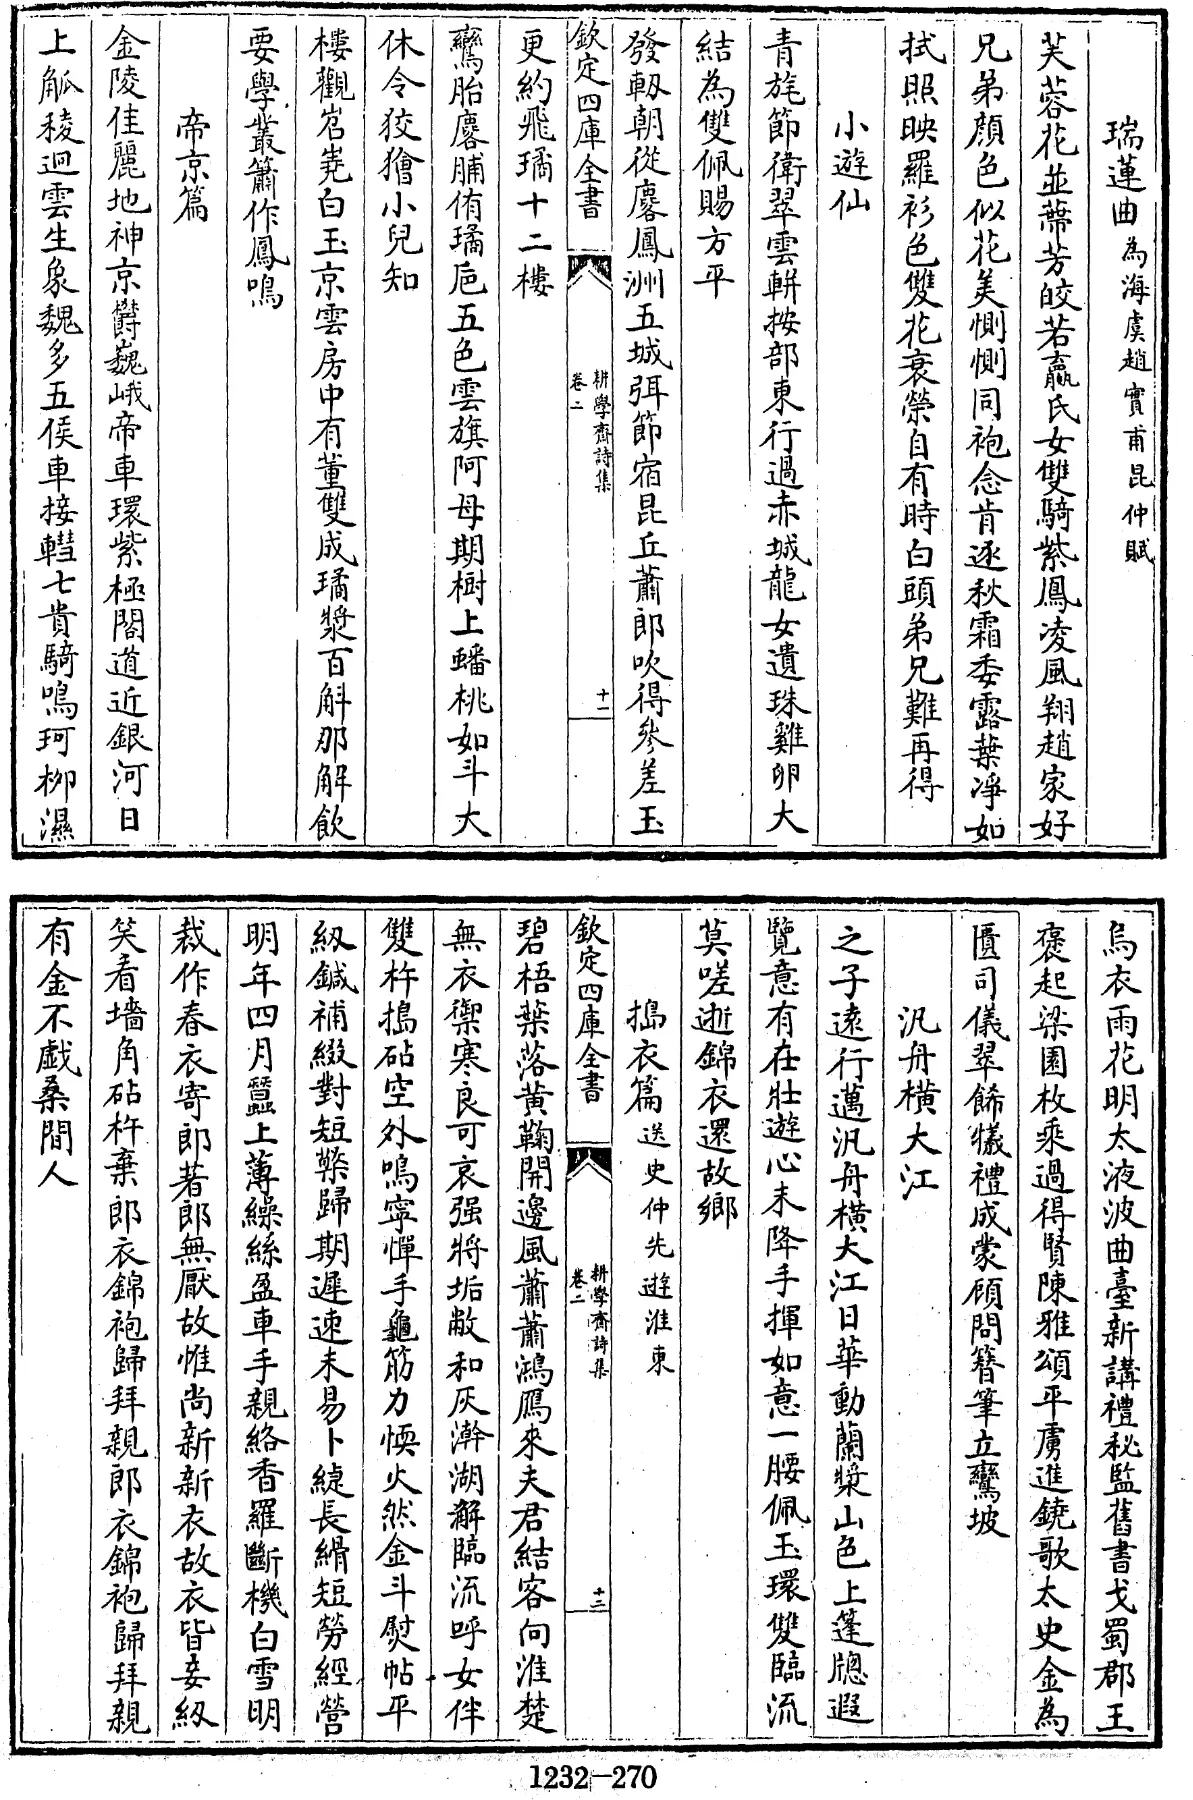 瑞蓮曲為海虞趙實甫昆仲賦
芙蓉花並蔕芳皎若嬴氏女雙騎紫鳳凌風翔趙家好
兄弟顔色似花美惻惻同袍念肯逐秋霜委露葉凈如
拭照映羅衫色雙花衰榮自有時白頭弟兄難再得
小遊仙
青旄節衛翠雲軿按部東行過赤城龍女遺珠雞卵大
結為雙佩賜方平
發軔朝從麐鳳洲五城弭節宿昆丘蕭郎吹得參差玉
欽定四庫全書
耕學齋詩集
卷二
十一
更約飛璚十二樓
鸞胎麐脯侑璚巵五色雲旗阿母期樹上蟠桃如斗大
休令狡獪小兒知
樓觀岧嶤白玉京雲房中有董雙成璚漿百斛那解飲
要學叢簫作鳳鳴
帝京篇
金陵佳麗地神京欝巍峨帝車環紫極閣道近銀河日
上觚稜迥雲生象魏多五侯車接轊七貴騎鳴珂柳濕
烏衣雨花明太液波曲臺新講禮秘監舊書戈蜀郡王
褒起梁園枚乘過得賢陳雅頌平虜進鐃歌太史金為
匱司儀翠飾犧禮成蒙顧問簪筆立鸞坡
汎舟橫大江
之子遠行邁汎舟橫大江日華動蘭槳山色上蓬牕遐
覽意有在壯遊心未降手揮如意一腰佩玉環雙臨流
莫嗟逝錦衣還故鄉
搗衣篇送史仲先遊淮東
欽定四庫全書
耕學齋詩集
卷二
十二
碧梧葉落黄鞠開邊風蕭蕭鴻鴈來夫君結客向淮楚
無衣禦寒良可哀强將垢敝和灰澣湖澥臨流呼女伴
雙杵搗砧空外鳴寧憚手龜筋力愞火然金斗熨帖平
紉鍼補綴對短檠歸期遲速未易卜緶長縎短勞經營
明年四月蠶上薄繰絲盈車手親絡香羅斷機白雪明
裁作春衣寄郎著郎無厭故惟尚新新衣故衣皆妾紉
笑看墻角砧杵棄郎衣錦袍歸拜親郎衣錦袍歸拜親
有金不戲桑間人
1232—270